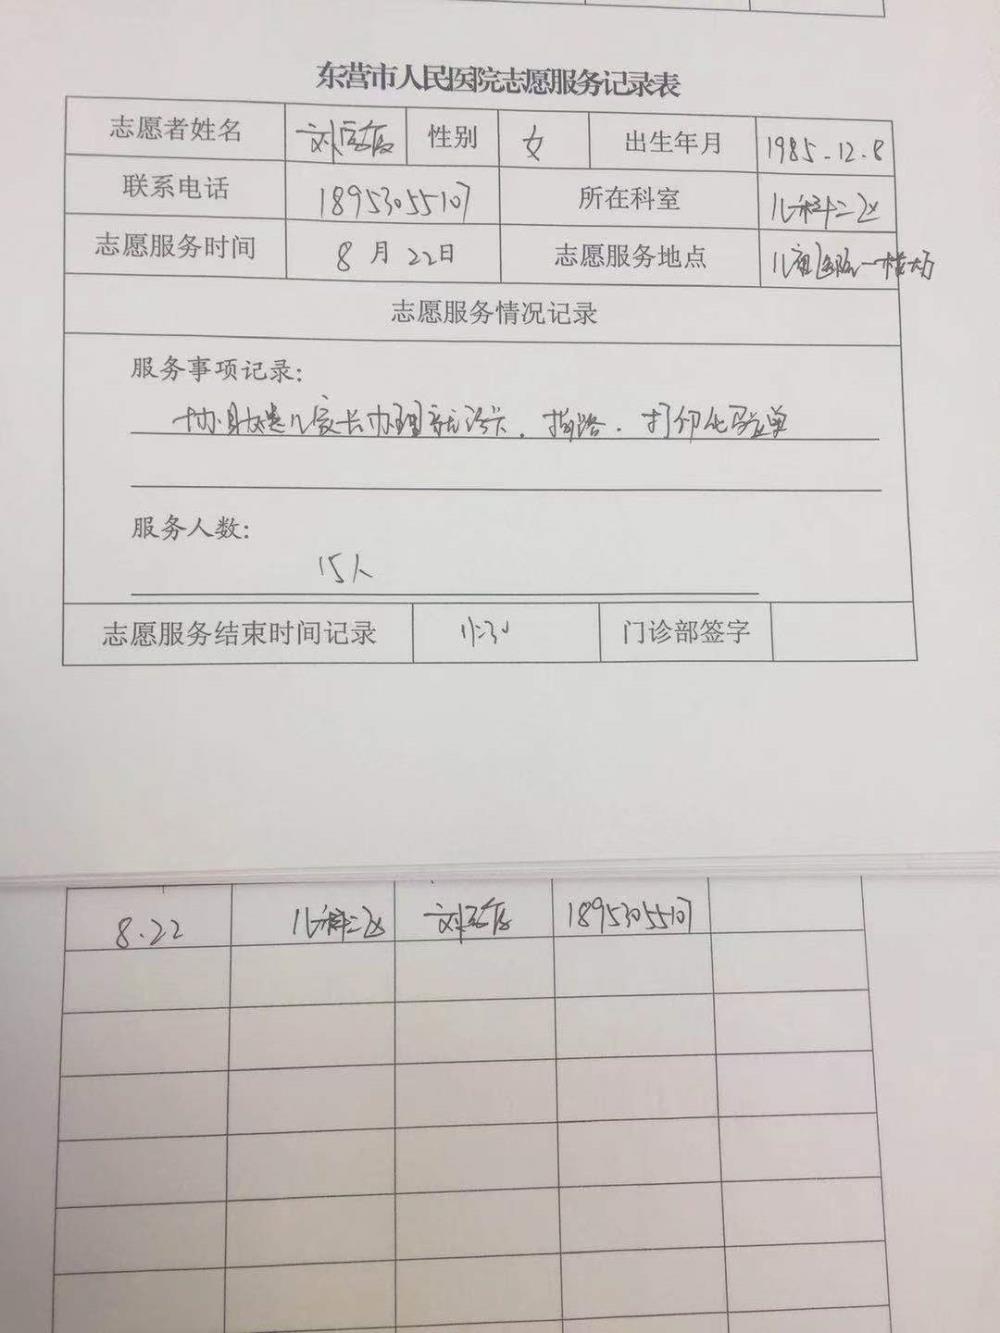 东营市人民医院志愿服务记录表
志愿者姓名 刘 性别 女 出生年月 1985.12.8
联系电话 18953055107 所在科室 儿科二区
志愿服务时间 8月22日 志愿服务地点 儿童医院一楼大厅
志愿服务情况记录
服务事项记录:
协助患儿家长办理就诊卡.指路.打印化验单
服务人数:
15人
志愿服务结束时间记录 11:30 门诊部签字
8.22 儿科二区 刘 18953055107